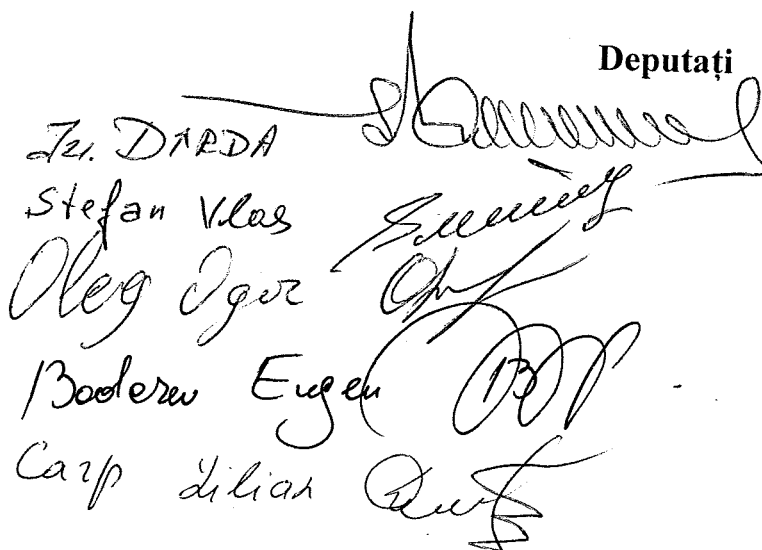 Deputați
Iu. DÎRDA
Stefan Vlas
Oleg Ogor
Bodarev Eugen
Carp Lilian